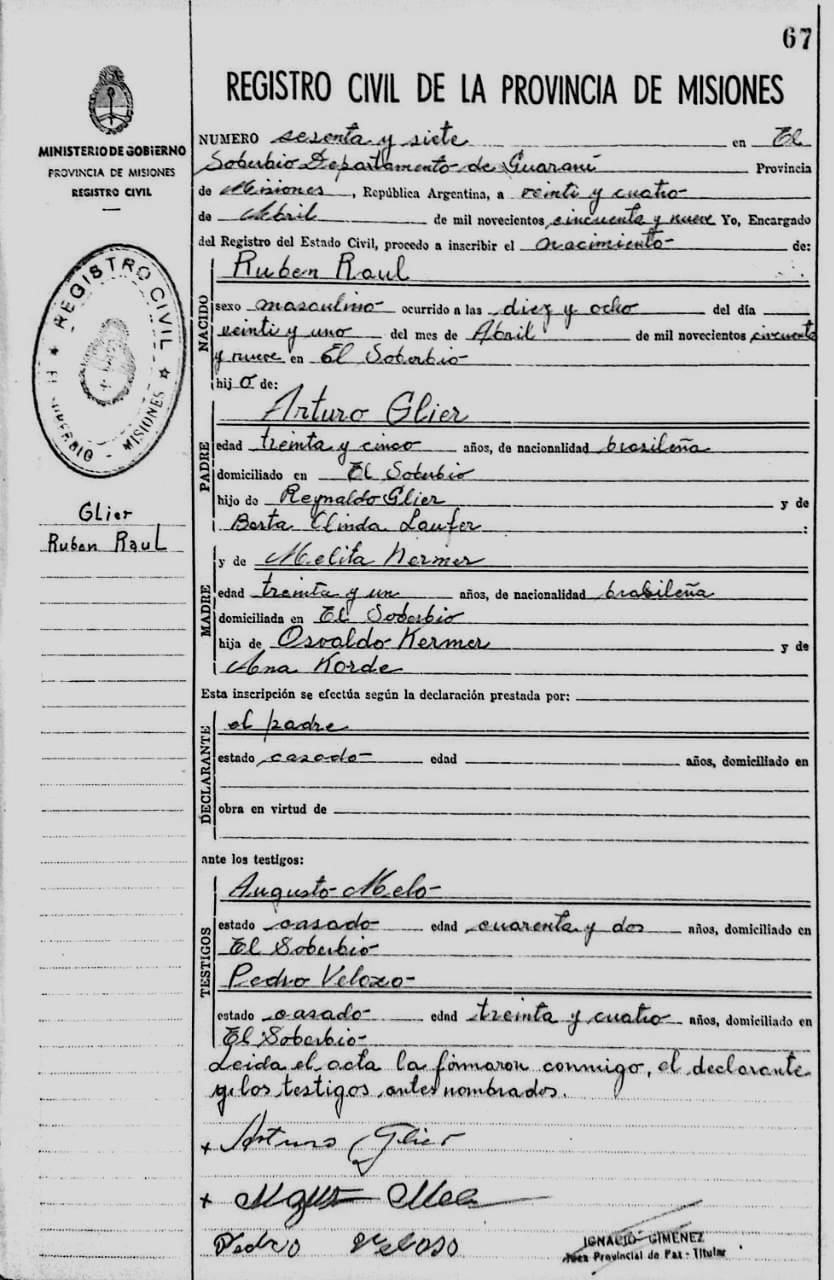 67
REGISTRO CIVIL DE LA PROVINCIA DE MISIONES
MINISTERIO DE GOBIERNO
PROVINCIA DE MISIONES
REGISTRO CIVIL
NUMERO sesenta y siete en El
Soberbio Departamento de Guaraní Provincia
de Misiones, República Argentina, a veinti y cuatro
de Abril de mil novecientos cincuenta y nueve Yo, Encargado
del Registro del Estado Civil, procedo a inscribir el nacimiento de:
REGISTRO CIVIL
EL SOBERBIO - MISIONES
NACIDO
Ruben Raul
sexo masculino ocurrido a las diez y ocho del día
veinti y uno del mes de Abril de mil novecientos cincuenta
y nueve en El Soberbio
hij o de:
PADRE
Arturo Glier
edad treinta y cinco años, de nacionalidad brasileña
domiciliado en El Soberbio
hijo de Reynaldo Glier y de
Berta Elinda Laufer :
Glier
Ruben Raul
MADRE
y de Melita Kermer
edad treinta y un años, de nacionalidad brasileña
domiciliada en El Soberbio
hija de Osvaldo Kermer y de
Ana Korde
Esta inscripción se efectúa según la declaración prestada por:
DECLARANTE
el padre
estado casado edad años, domiciliado en
obra en virtud de
ante los testigos:
TESTIGOS
Augusto Melo
estado casado edad cuarenta y dos años, domiciliado en
El Soberbio
Pedro Velozo
estado casado edad treinta y cuatro años, domiciliado en
El Soberbio
Leida el acta la firmaron conmigo, el declarante
y los testigos antes nombrados.
x Arturo Glier
x
Pedro Veloso
IGNACIO GIMENEZ
Juez Provincial de Paz - Titular